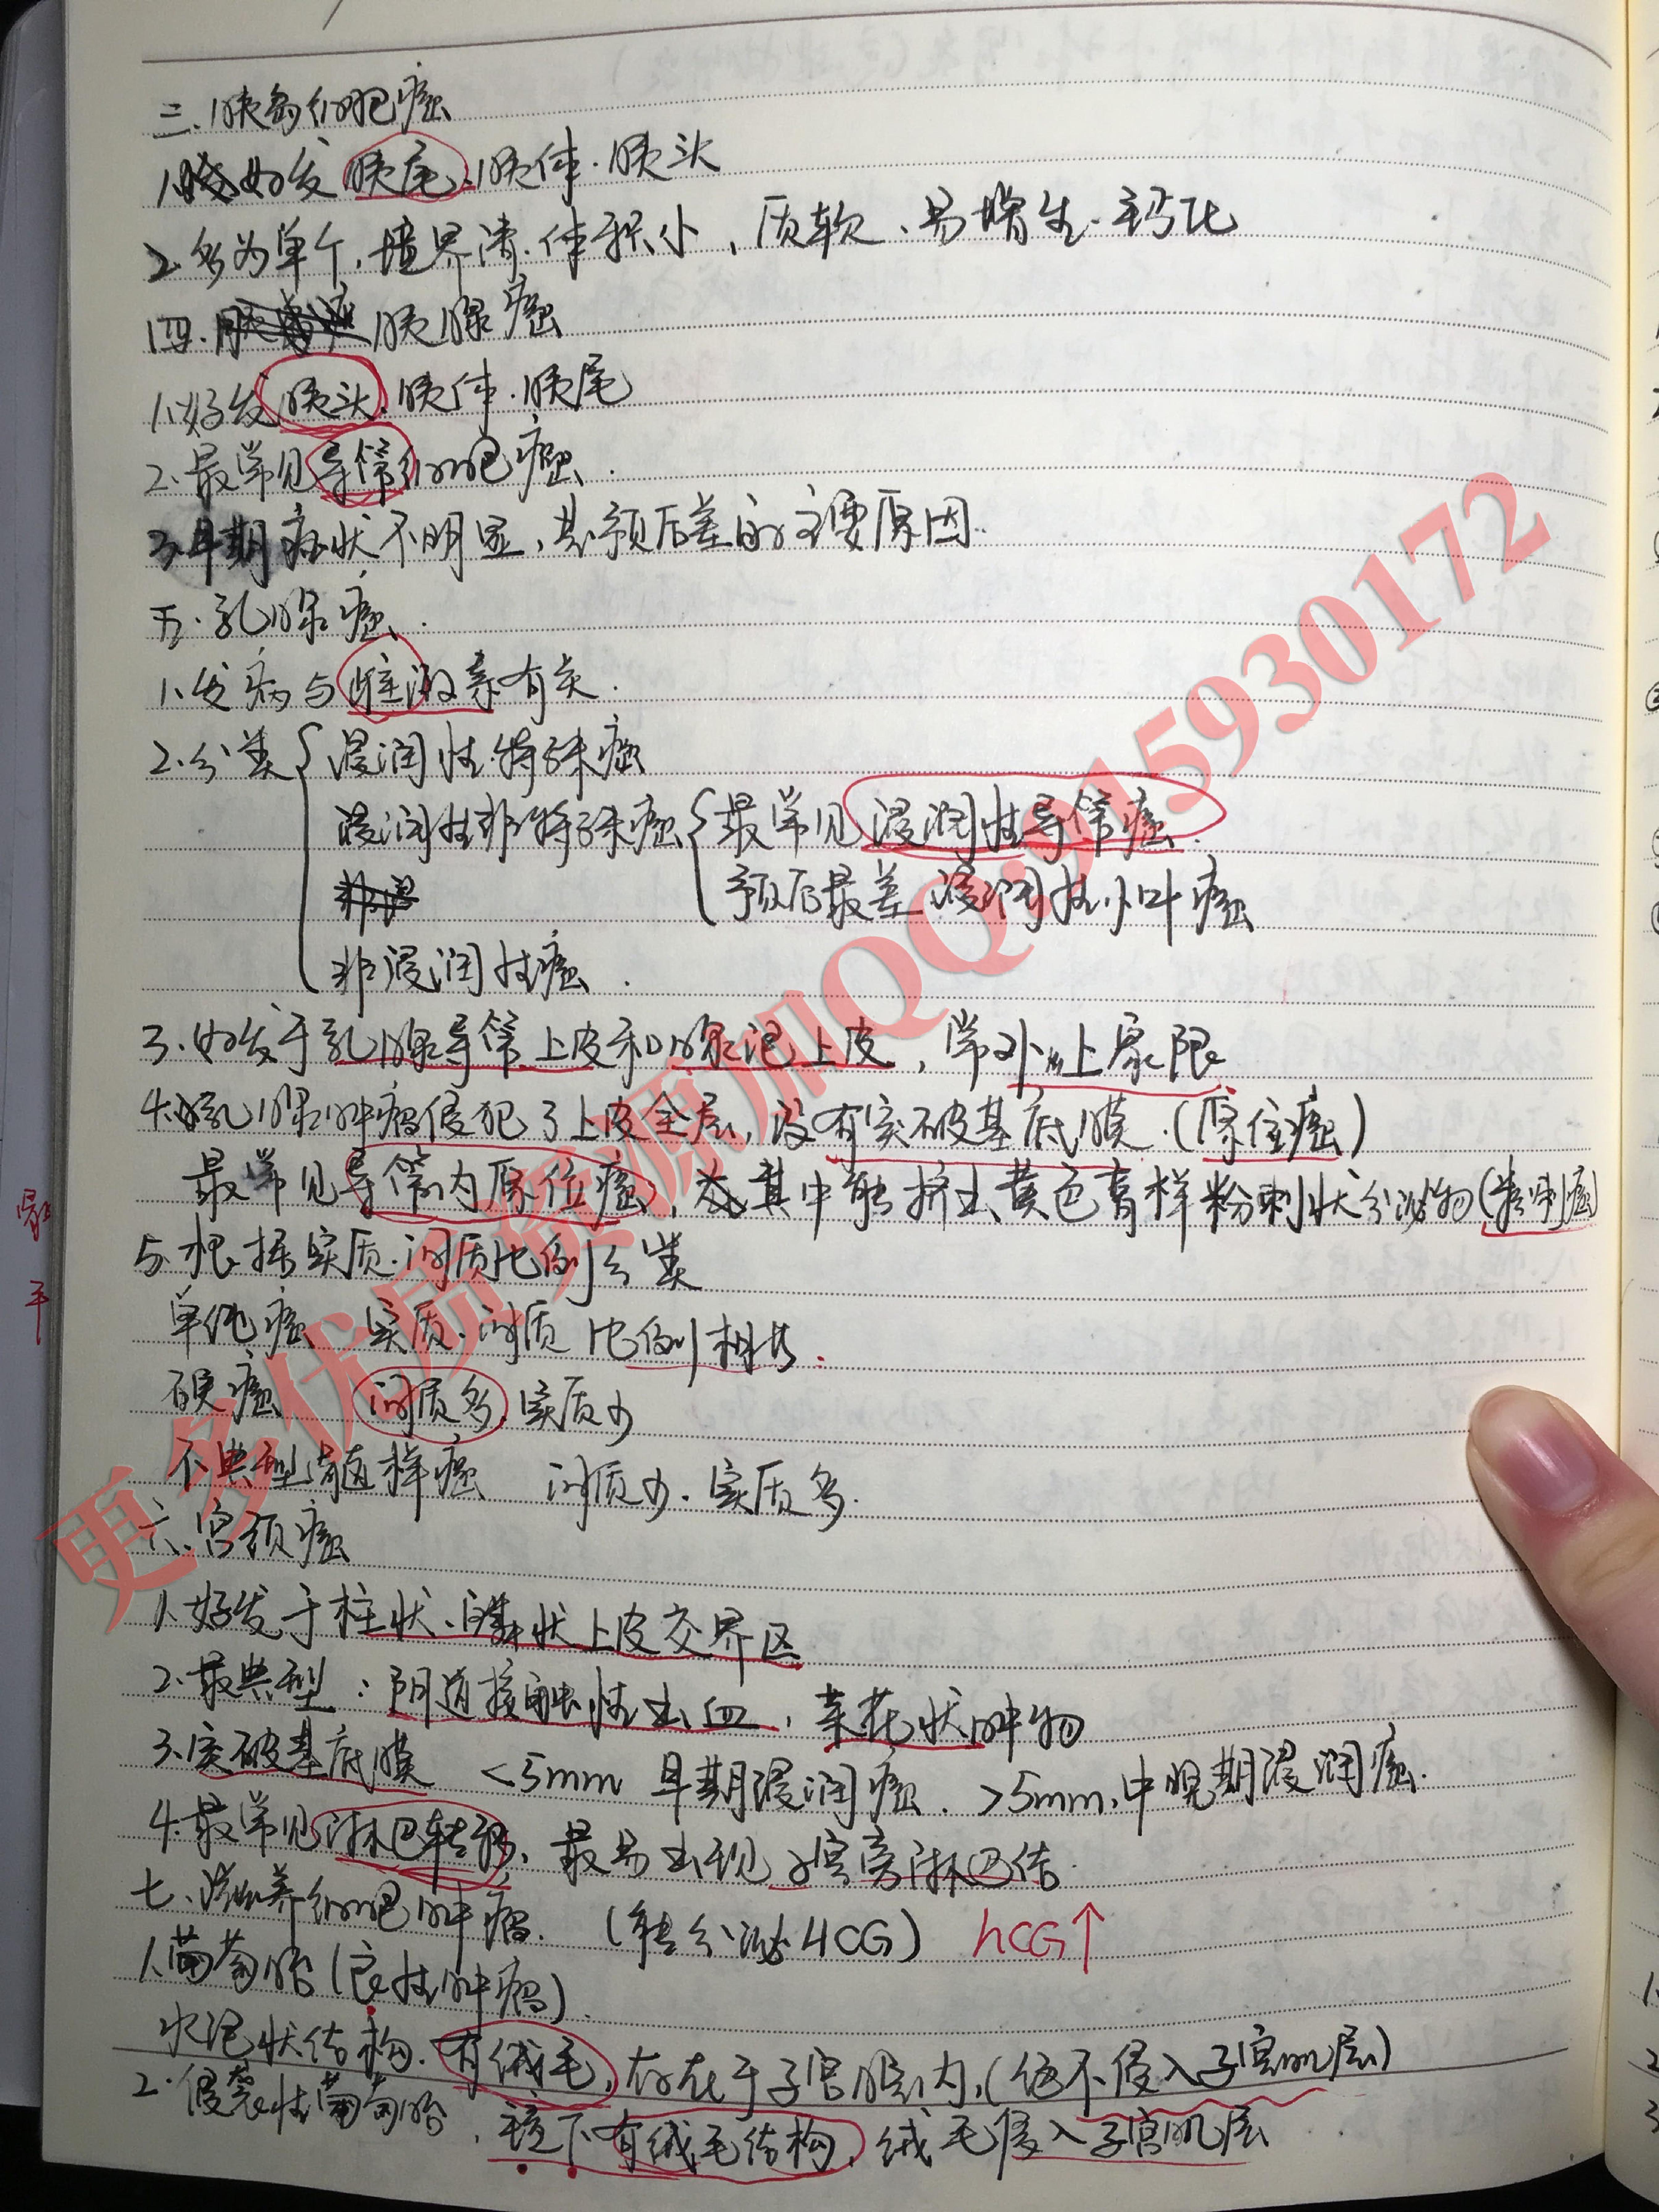 三.胰岛细胞瘤
1.好发胰尾.胰体.胰头
2.多为单个,境界清.体积小,质软、易增生.钙化
四.胰腺癌
1.好发胰头.胰体.胰尾
2.最常见导管细胞癌.
3.早期症状不明显,其预后差的主要原因.
五.乳腺癌.
1.发病与雌激素有关.
2.分类 浸润性特殊癌
浸润性非特殊癌 最常见浸润性导管癌.
预后最差 浸润性小叶癌
非浸润性癌.
3.好发于乳腺导管上皮和腺泡上皮,常外上象限
4.乳腺肿瘤侵犯了上皮全层,没有突破基底膜.(原位癌)
最常见导管内原位癌,其中能挤出黄色膏样粉刺状分泌物(粉刺癌)
5.根据实质.间质比例分类
单纯癌 实质.间质 比例相当.
硬癌 间质多.实质少
不典型髓样癌 间质少.实质多.
六.宫颈癌
1.好发于柱状、鳞状上皮交界区
2.最典型:阴道接触性出血,菜花状肿物
3.突破基底膜 <5mm 早期浸润癌. >5mm,中晚期浸润癌.
4.最常见淋巴转移,最易出现子宫旁淋巴结.
七.滋养细胞肿瘤. (分泌HCG) hCG↑
1.葡萄胎(良性肿瘤).
水泡状结构.有绒毛,存在于子宫腔内,(但不侵入子宫肌层)
2.侵袭性葡萄胎,镜下有绒毛结构,绒毛侵入子宫肌层
更多优质资源加QQ:915930172